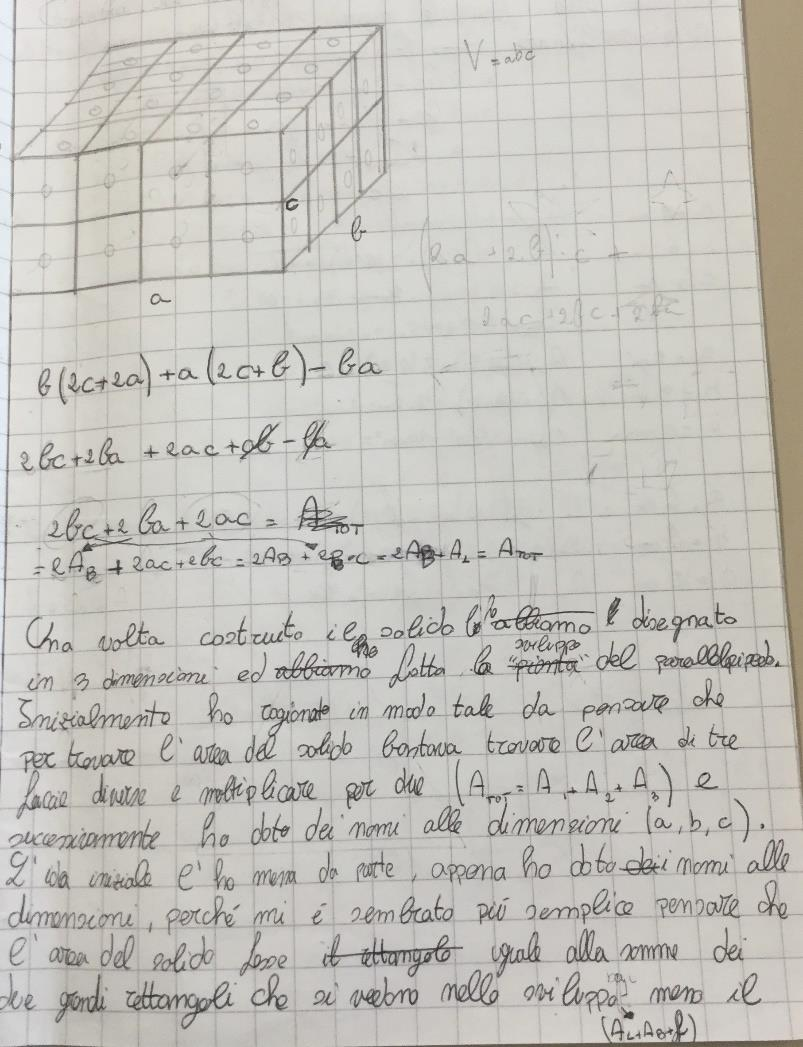 V = abc
c
b
a
(2a + 2b) · c +
2ac + 2bc + 2ba
b(2c+2a) + a(2c+b) - ba
2bc + 2ba + 2ac + ab - ba
2bc + 2ba + 2ac = A TOT
= 2A_B + 2ac + 2bc = 2A_B + 2 · c = 2A_B + A_L = A_TOT
Una volta costruito il solido l'ho abbiamo disegnato
in 3 dimensioni ed abbiamo ho fatto lo "pianta" sviluppo del parallelepipedo.
Inizialmente ho ragionato in modo tale da pensare che
per trovare l'area del solido bastava trovare l'area di tre
faccie diverse e moltiplicare per due (A_TOT = A_1 + A_2 + A_3) e
successivamente ho dato dei nomi alle dimensioni (a, b, c).
L'idea iniziale l'ho messa da parte, appena ho dato dei i nomi alle
dimensioni, perché mi è sembrato più semplice pensare che
l'area del solido fosse il rettangolo uguale alla somma dei
due grandi rettangoli che si vedono nello sviluppo meno il
(A_L + A_B +